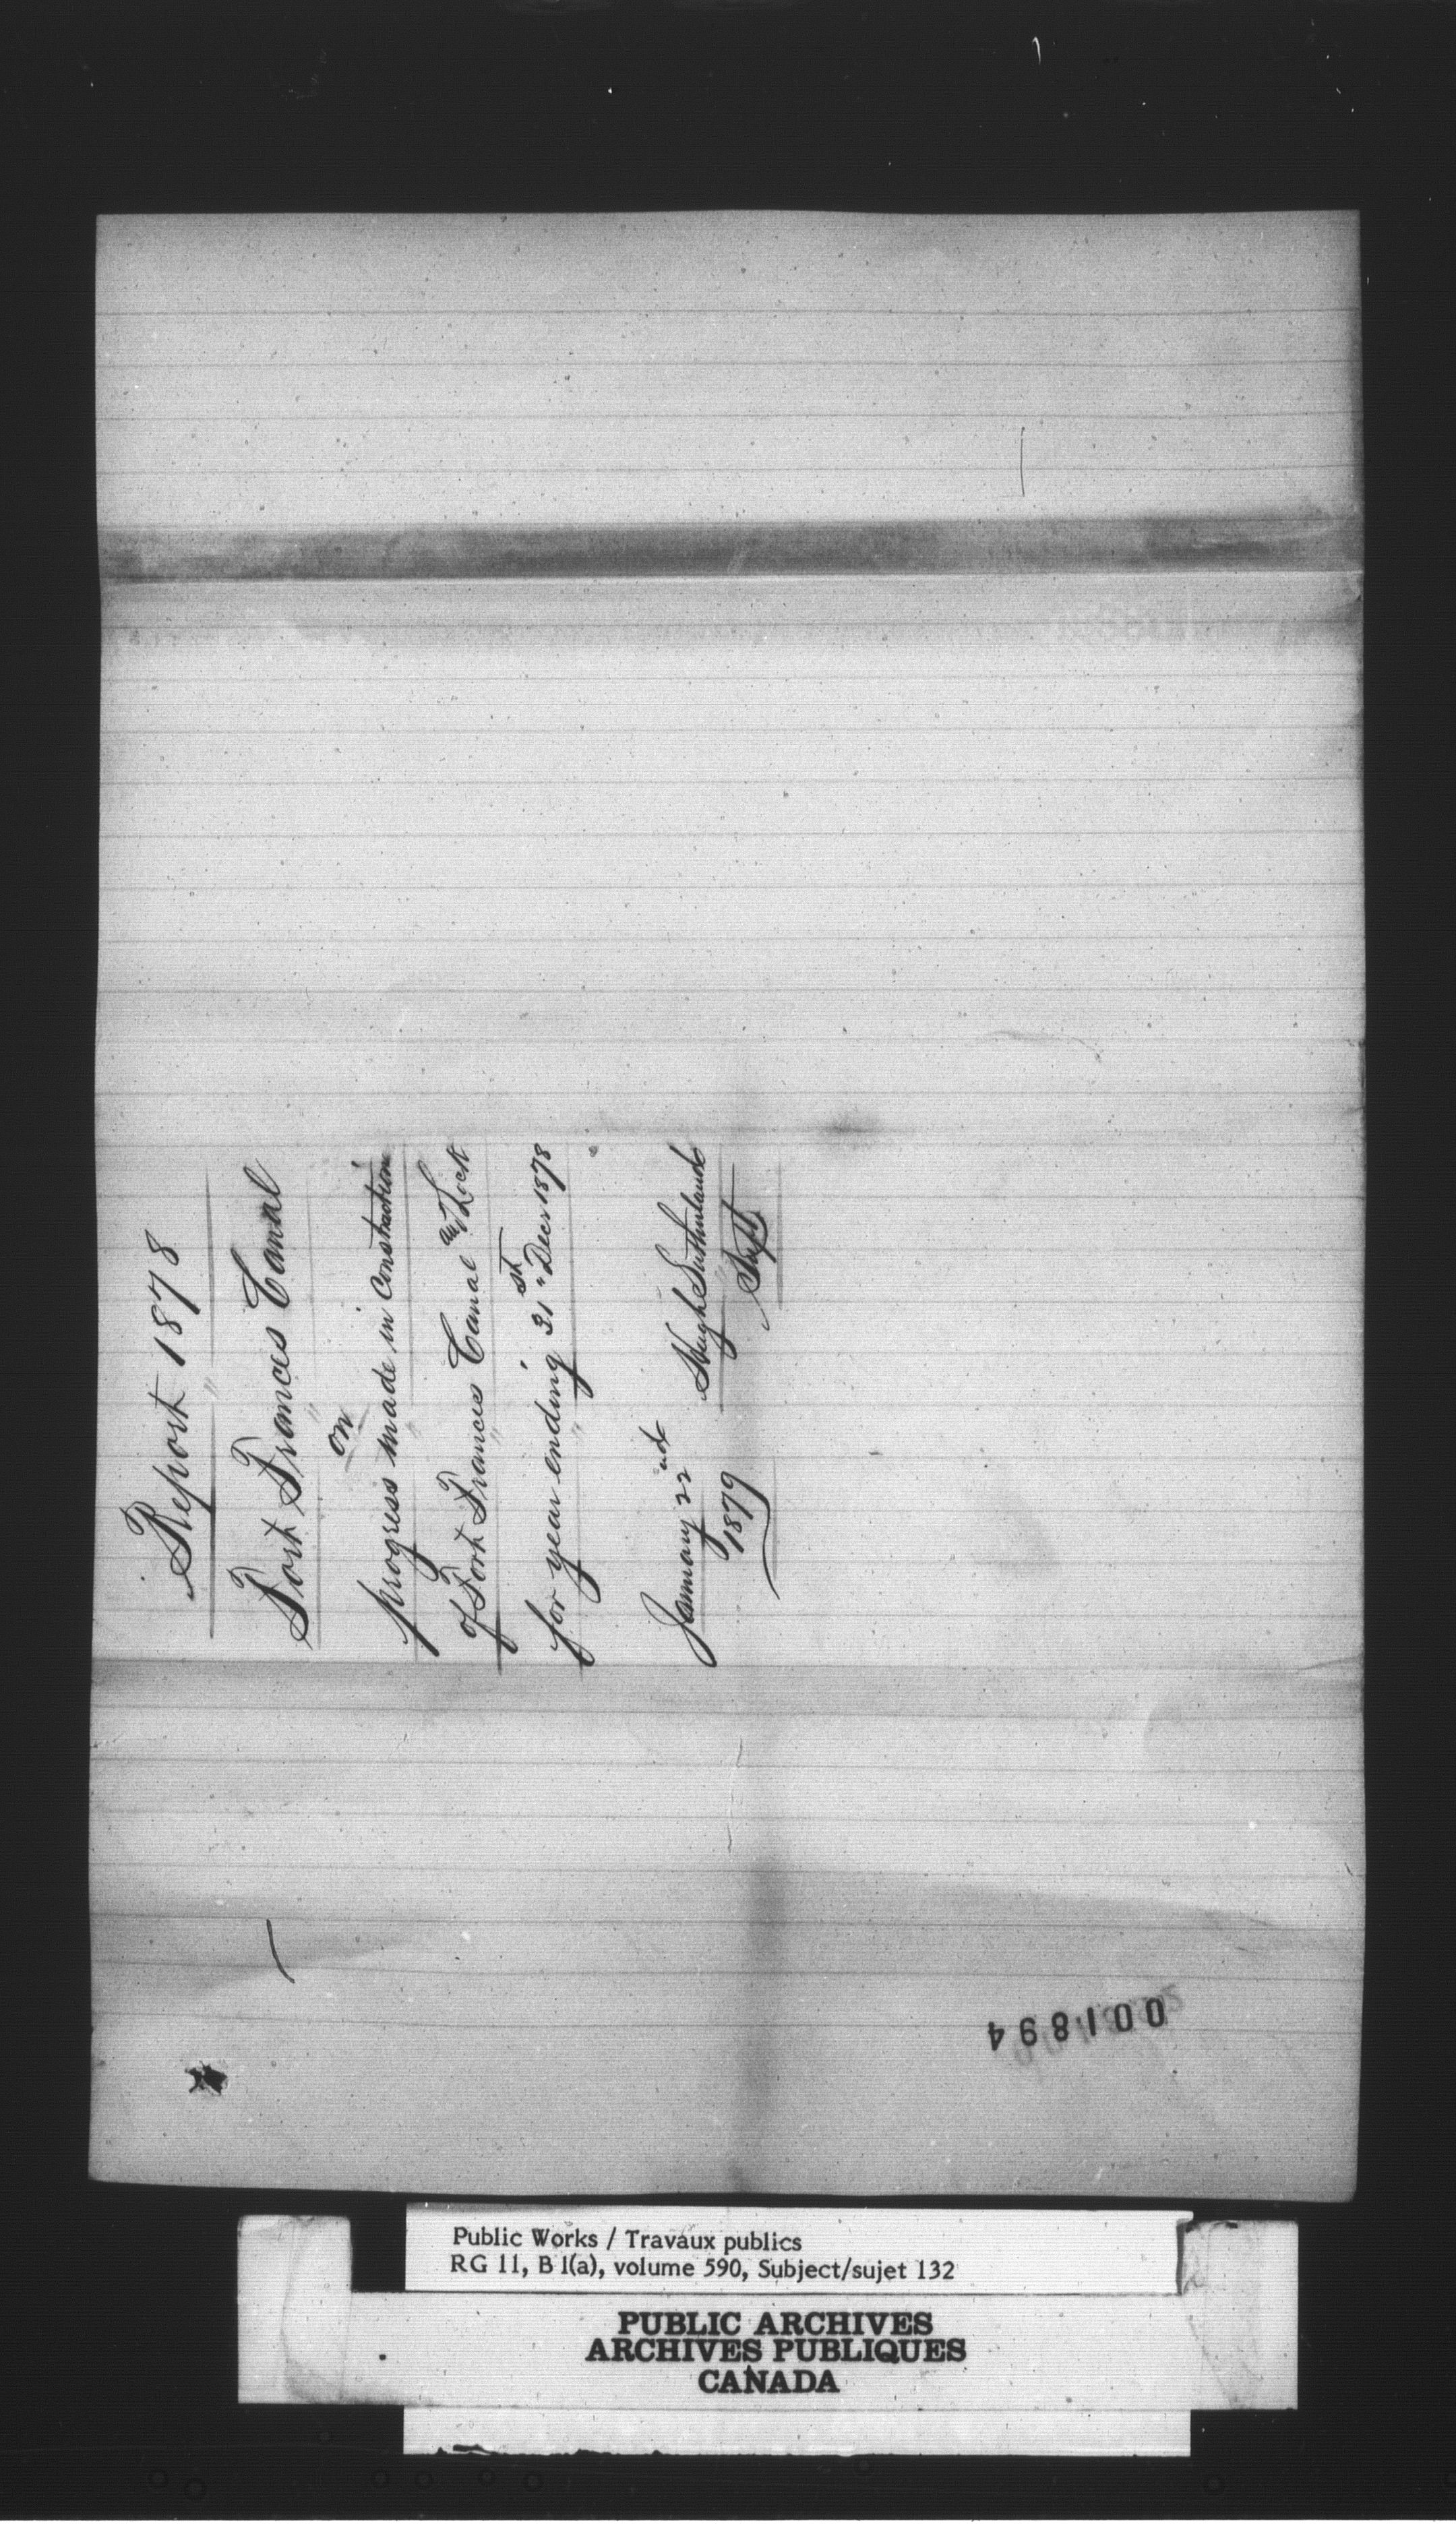 Report 1878
Fort Frances Canal
on
progress made in Construction
of Fort Frances Canal and Lock
for year ending 31st Decr 1878
Hugh Sutherland
Supt
January 22nd
1879
001894
Public Works / Travaux publics
RG 11, B 1(a), volume 590, Subject/sujet 132
PUBLIC ARCHIVES
ARCHIVES PUBLIQUES
CANADA